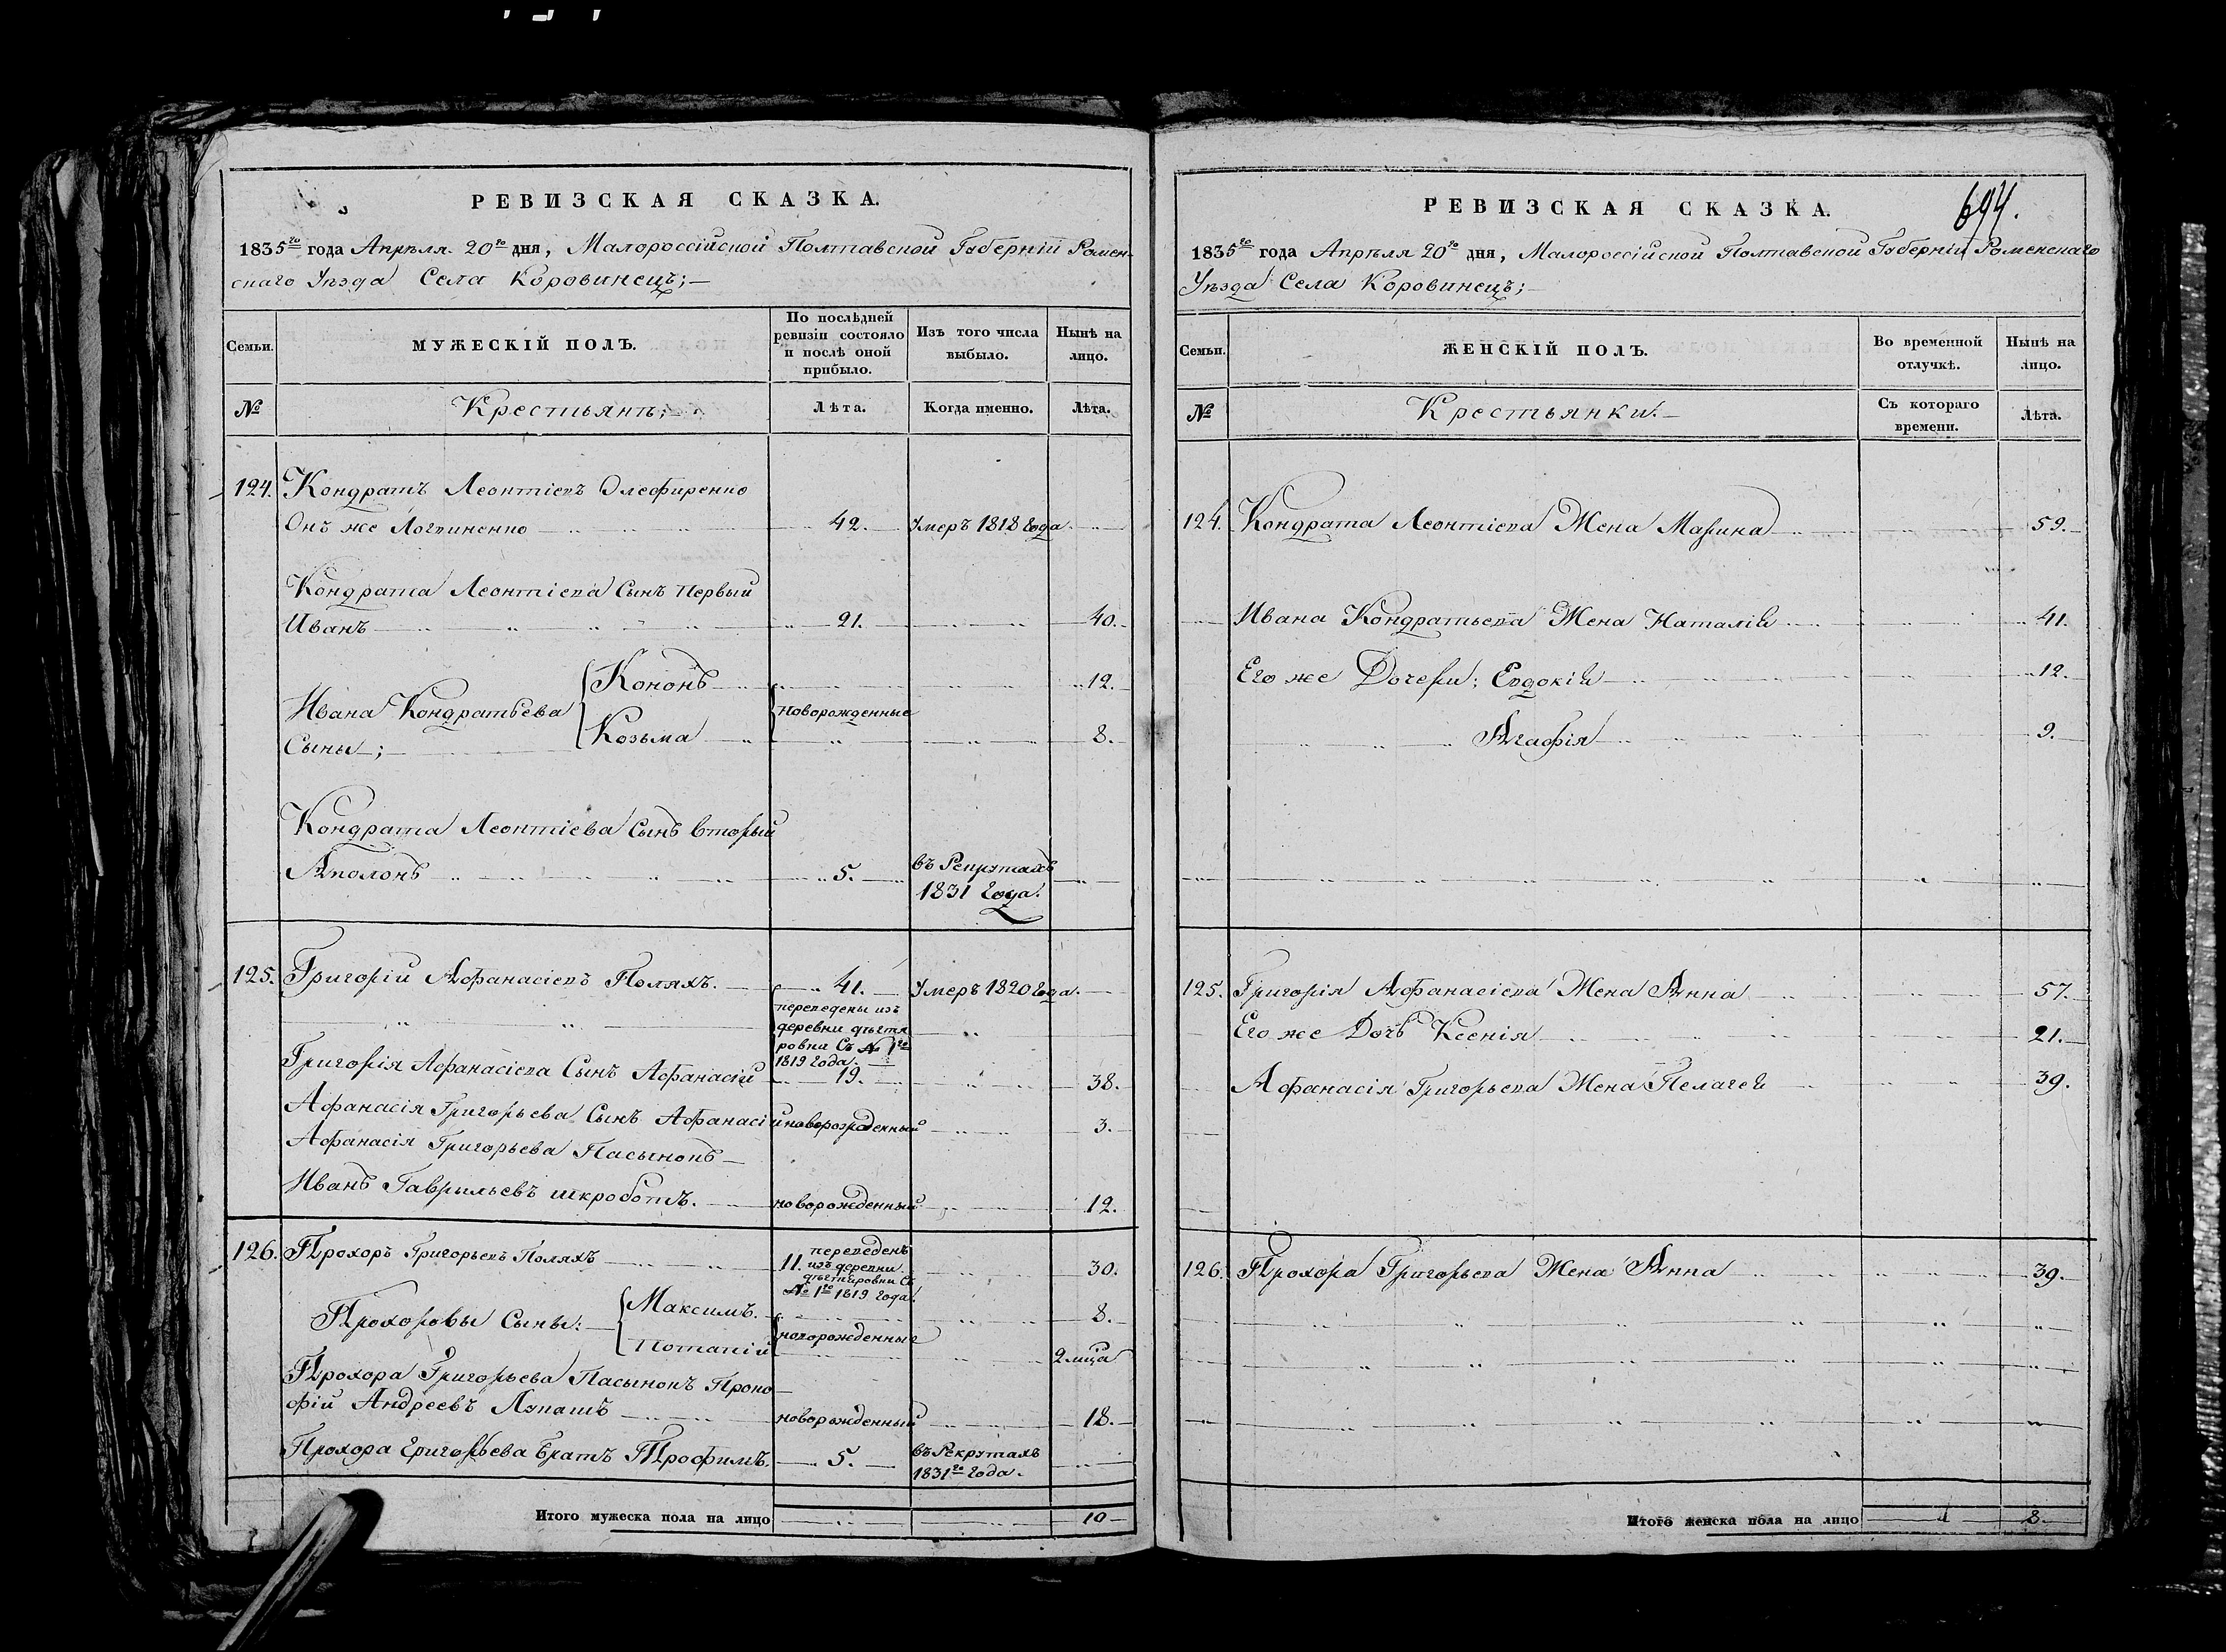 РЕВИЗСКАЯ СКАЗКА.
1835го года Апрѣля 20го дня, Малороссійской Полтавской Губерніи Ромен-
скаго Уѣзда Села Коровинецъ;
Семьи.
МУЖЕСКІЙ ПОЛЪ.
По послѣдней
ревизіи состояло
и послѣ оной
прибыло.
Изъ того числа
выбыло.
Нынѣ на
лицо.
№
Крестьянъ;
Лѣта.
Когда именно.
Лѣта.
124. Кондратъ Леонтіевъ Олефиренко
Онъ же Логвиненко 42. Умеръ 1818 года.
Кондрата Леонтіева Сынъ Первый
Иванъ 21. 40.
Ивана Кондратьева
Сыны;
Кононъ 12.
Новорожденные
Козьма 8.
Кондрата Леонтіева Сынъ Вторый
Аполонъ 5. въ Рекрутахъ
1831 года.
125. Григорій Афанасіевъ Поляхъ. 41. Умеръ 1820 года.
переведены изъ
деревни
ровки Съ № 1го
1819 года.
Григорія Афанасіева Сынъ Афанасій 19. 38.
Афанасія Григорьева Сынъ Афанасій новорожденный 3.
Афанасія Григорьева Пасынокъ
Иванъ Гаврильевъ шкроботъ. новорожденный 12.
126. Прохоръ Григорьевъ Поляхъ 11. переведенъ
изъ деревни
Съ
№ 1го 1819 года. 30.
Прохоровы Сыны:
Максимъ. 8.
новорожденные
Потапій 2 мца
Прохора Григорьева Пасынокъ Проко-
фій Андреевъ Лупашъ новорожденный 18.
Прохора Григорьева Братъ Трофимъ. 5. въ Рекрутахъ
1831го года.
Итого мужеска пола на лицо 10
РЕВИЗСКАЯ СКАЗКА.
694.
1835го года Апрѣля 20го дня, Малороссійской Полтавской Губерніи Роменскаго
Уѣзда Села Коровинецъ;
Семьи.
ЖЕНСКІЙ ПОЛЪ.
Во временной
отлучкѣ.
Нынѣ на
лицо.
№
Крестьянки.
Съ котораго
времени.
Лѣта.
124. Кондрата Леонтіева Жена Марина 59.
Ивана Кондратьева Жена Наталія 41.
Его же Дочери; Евдокія 12.
Агафія 9.
125. Григорія Афанасіева Жена Анна 57.
Его же Дочь Ксенія 21.
Афанасія Григорьева Жена Пелагея 39.
126. Прохора Григорьева Жена Анна 39.
Итого женска пола на лицо 8.